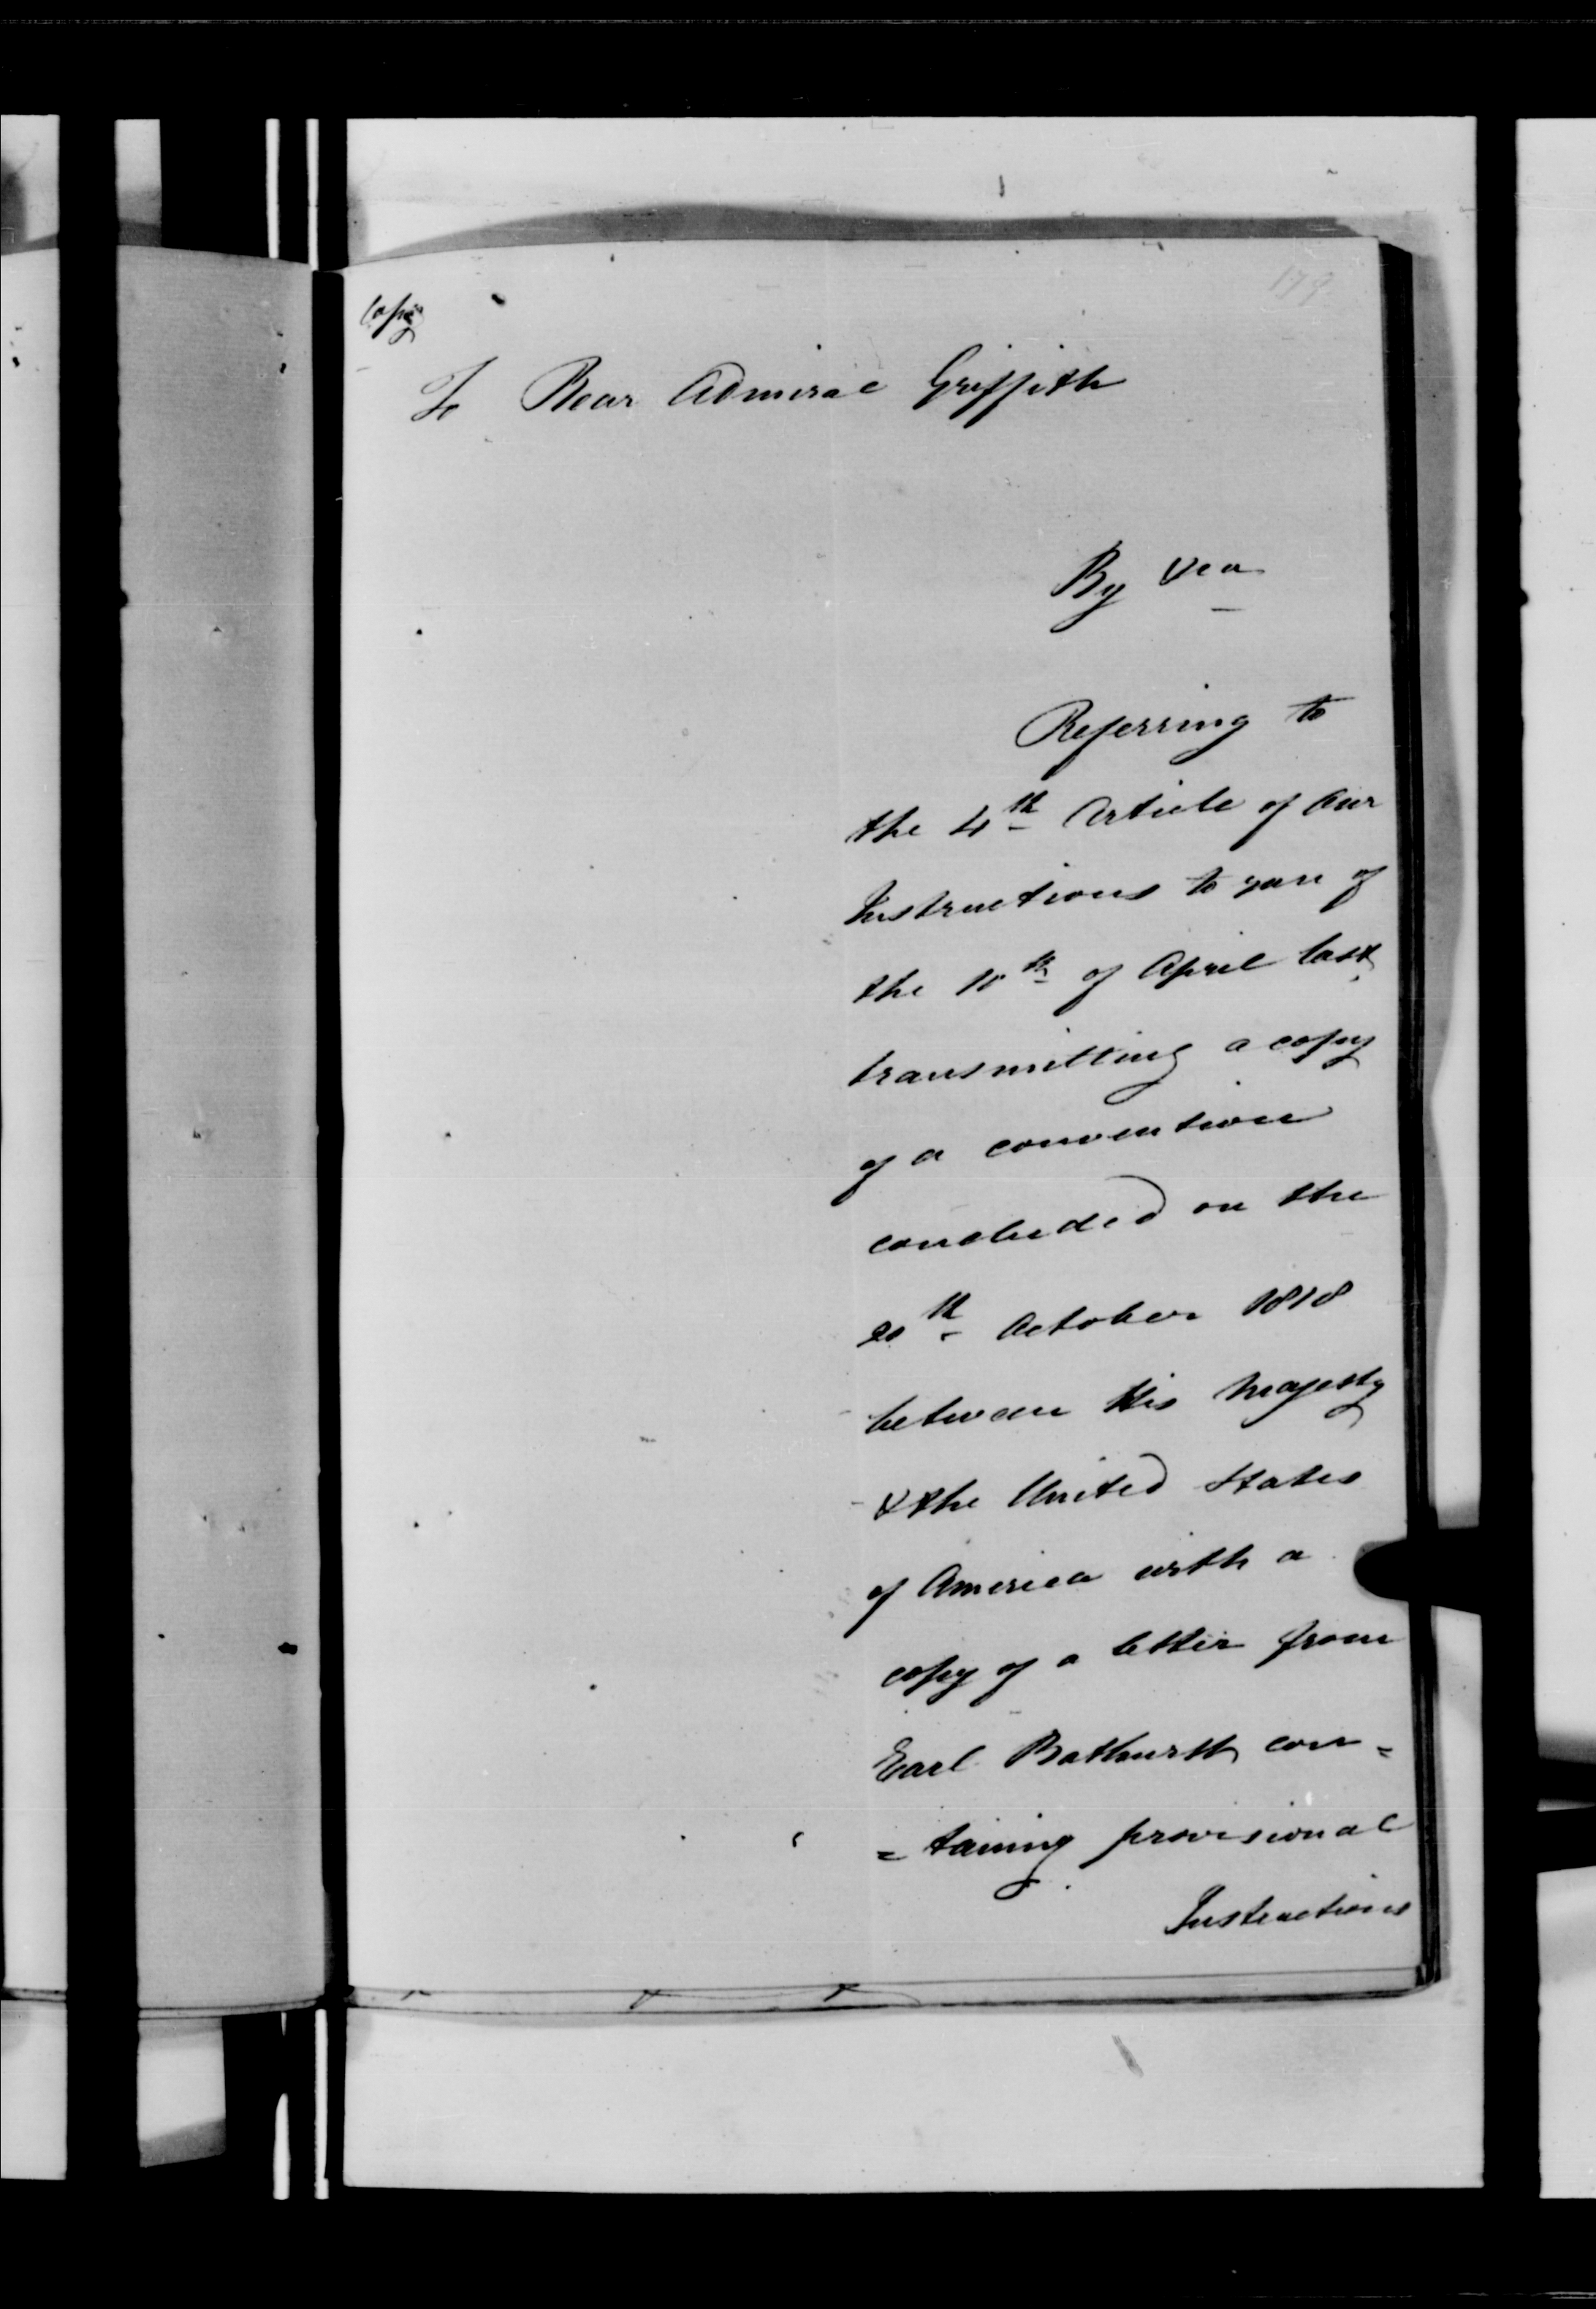 179
Copy
To Rear Admiral Griffith
By &ca
Referring to
the 4th Article of our
Instructions to you of
the 10th of April last
transmitting a copy
of a convention
concluded on the
20th October 1818
between His Majesty
& the United States
of America with a
copy of a letter from
Earl Bathurst con=
=taining provisional
Instructions